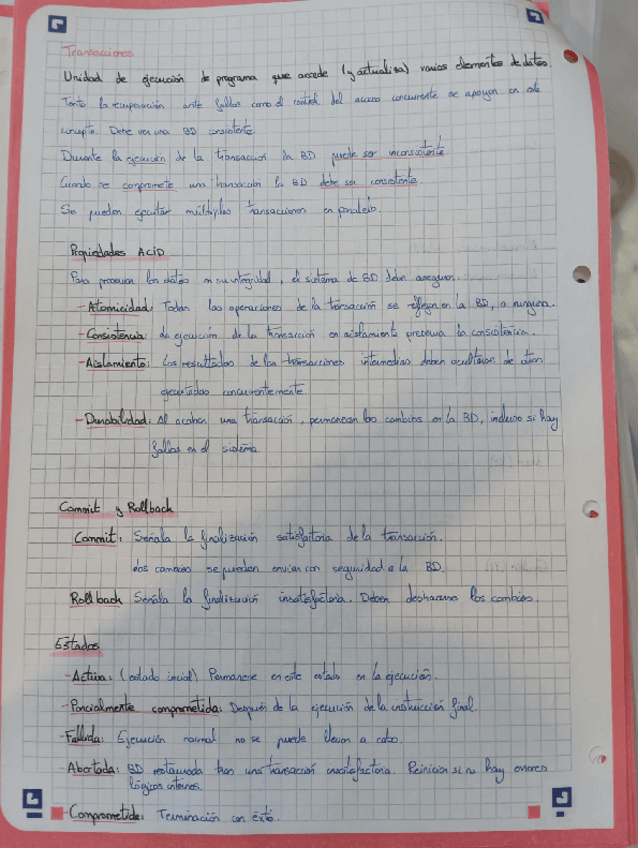 Transacciones
Unidad de ejecución de programa que accede (y actualiza) varios elementos de datos.
Tanto la recuperación ante fallos como el control del acceso concurrente se apoyan en este
concepto. Debe ver una BD consistente.
Durante la ejecución de la transacción la BD puede ser inconsistente
Cuando se compromete una transacción la BD debe ser consistente
Se pueden ejecutar múltiples transacciones en paralelo.
Propiedades ACID
Para preservar los datos en su integridad, el sistema de BD debe asegurar:
-Atomicidad: Todas las operaciones de la transacción se reflejan en la BD, o ninguna.
-Consistencia: La ejecución de la transacción en aislamiento preserva la consistencia.
-Aislamiento: Los resultados de las transacciones intermedias deben ocultarse de otras
ejecutadas concurrentemente
-Durabilidad: Al acabar una transacción, permanecen los cambios en la BD, incluso si hay
fallos en el sistema.
Commit y Rollback
Commit: Señala la finalización satisfactoria de la transacción.
Los cambios se pueden enviar con seguridad a la BD.
Rollback Señala la finalización insatisfactoria. Deben deshacerse los cambios.
Estados
-Activa: (estado inicial) Permanece en este estado en la ejecución.
-Parcialmente comprometida: Después de la ejecución de la instrucción final.
-Fallida: Ejecución normal no se puede llevar a cabo.
-Abortada: BD restaurada tras una transacción insatisfactoria. Reinicia si no hay errores
lógicos internos.
-Comprometida: Terminación con éxito.